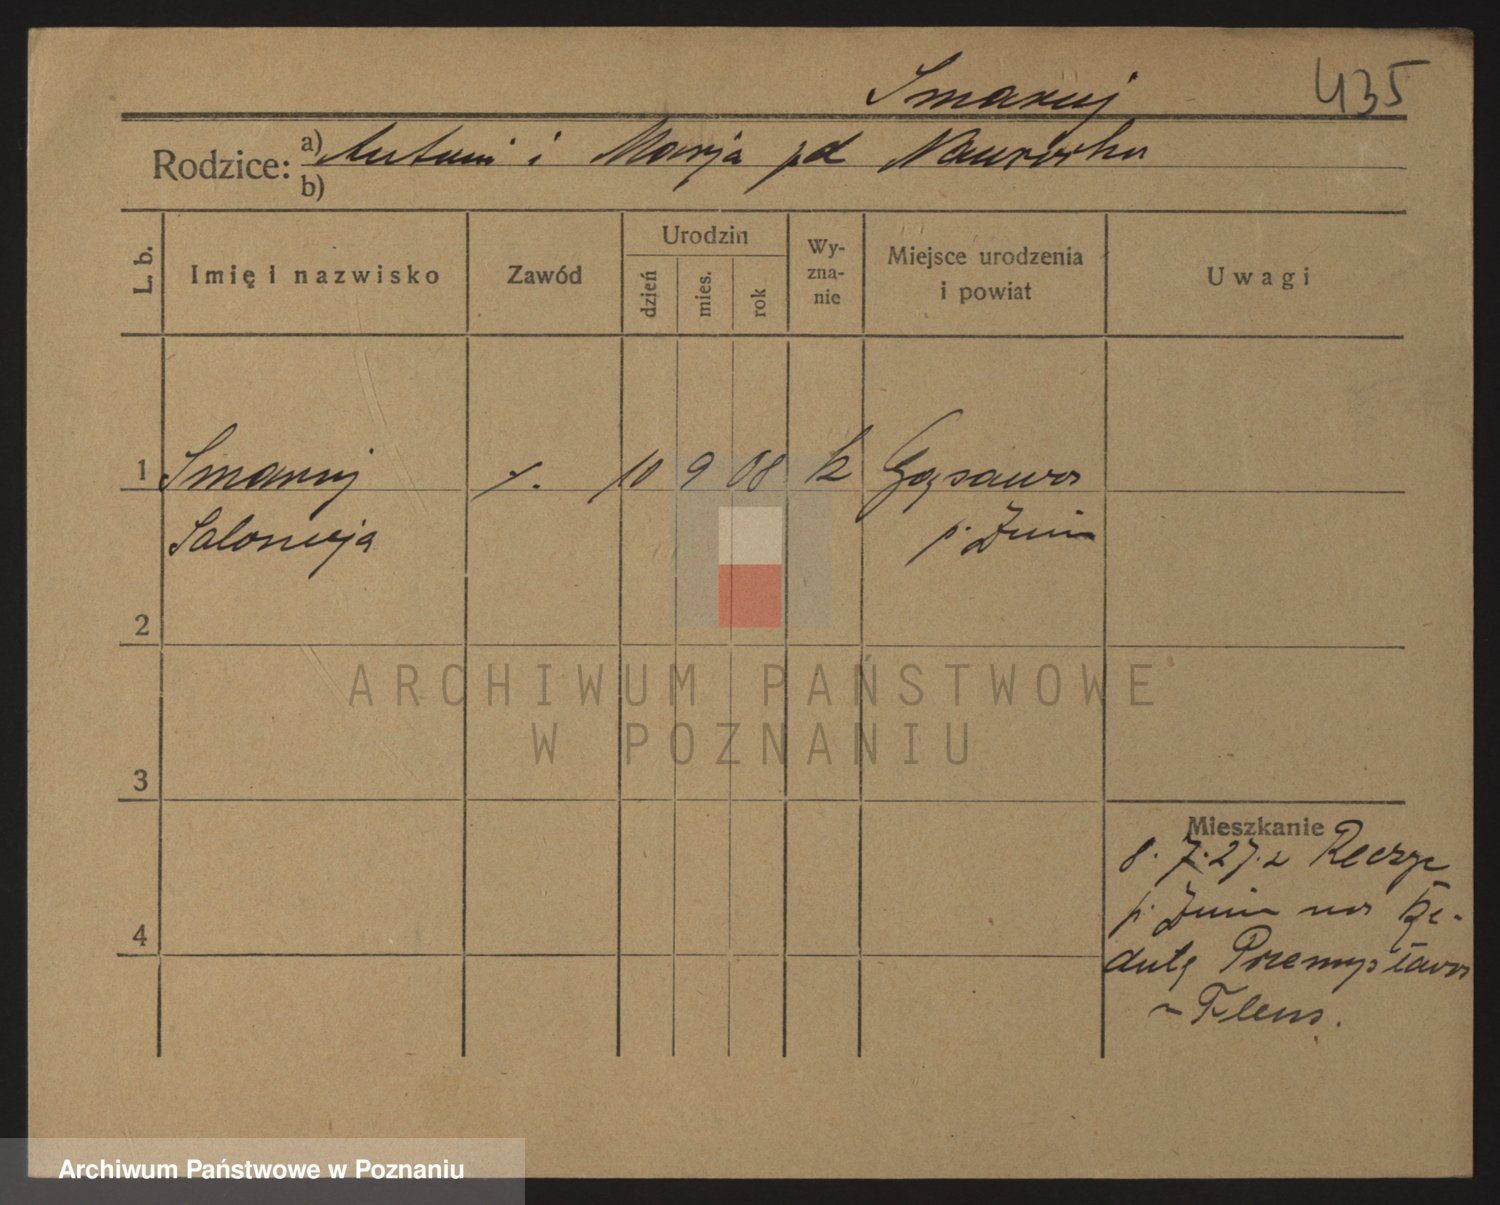 Smaruj 435
Rodzice: a) Antoni i Marja pd Nawrocka
b)
L. b.
Imię i nazwisko
Zawód
Urodzin
dzień
mies.
rok
Wy-
zna-
nie
Miejsce urodzenia
i powiat
Uwagi
1 Smaruj 10 9 08 k Gąsawa
Salomeja p. Żnin
2
3
4
Mieszkanie
8. 7. 27. z
p. Żnin na
Przemysława
ARCHIWUM PAŃSTWOWE
W POZNANIU
Archiwum Państwowe w Poznaniu